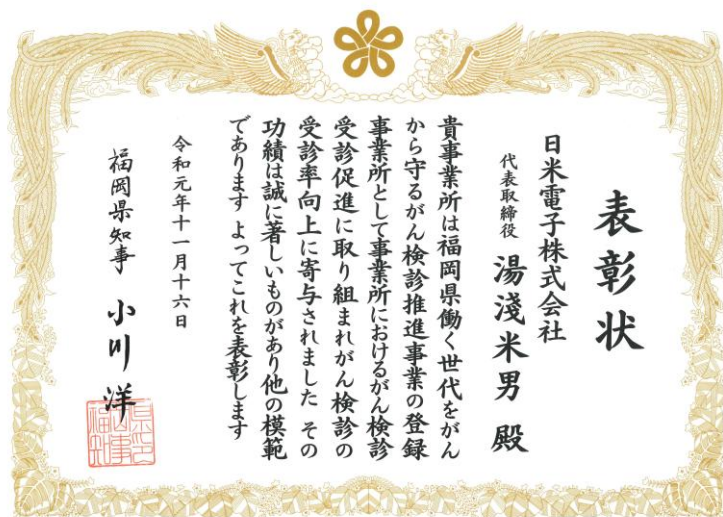 表彰状
日米電子株式会社
代表取締役 湯淺米男 殿
貴事業所は福岡県働く世代をがん
から守るがん検診推進事業の登録
事業所として事業所におけるがん検診
受診促進に取り組まれがん検診の
受診率向上に寄与されました その
功績は誠に著しいものがあり他の模範
であります よってこれを表彰します
令和元年十一月十六日
福岡県知事 小川洋